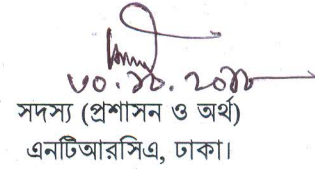 ৩০.১০.২০১৮
সদস্য (প্রশাসন ও অর্থ)
এনটিআরসিএ, ঢাকা।